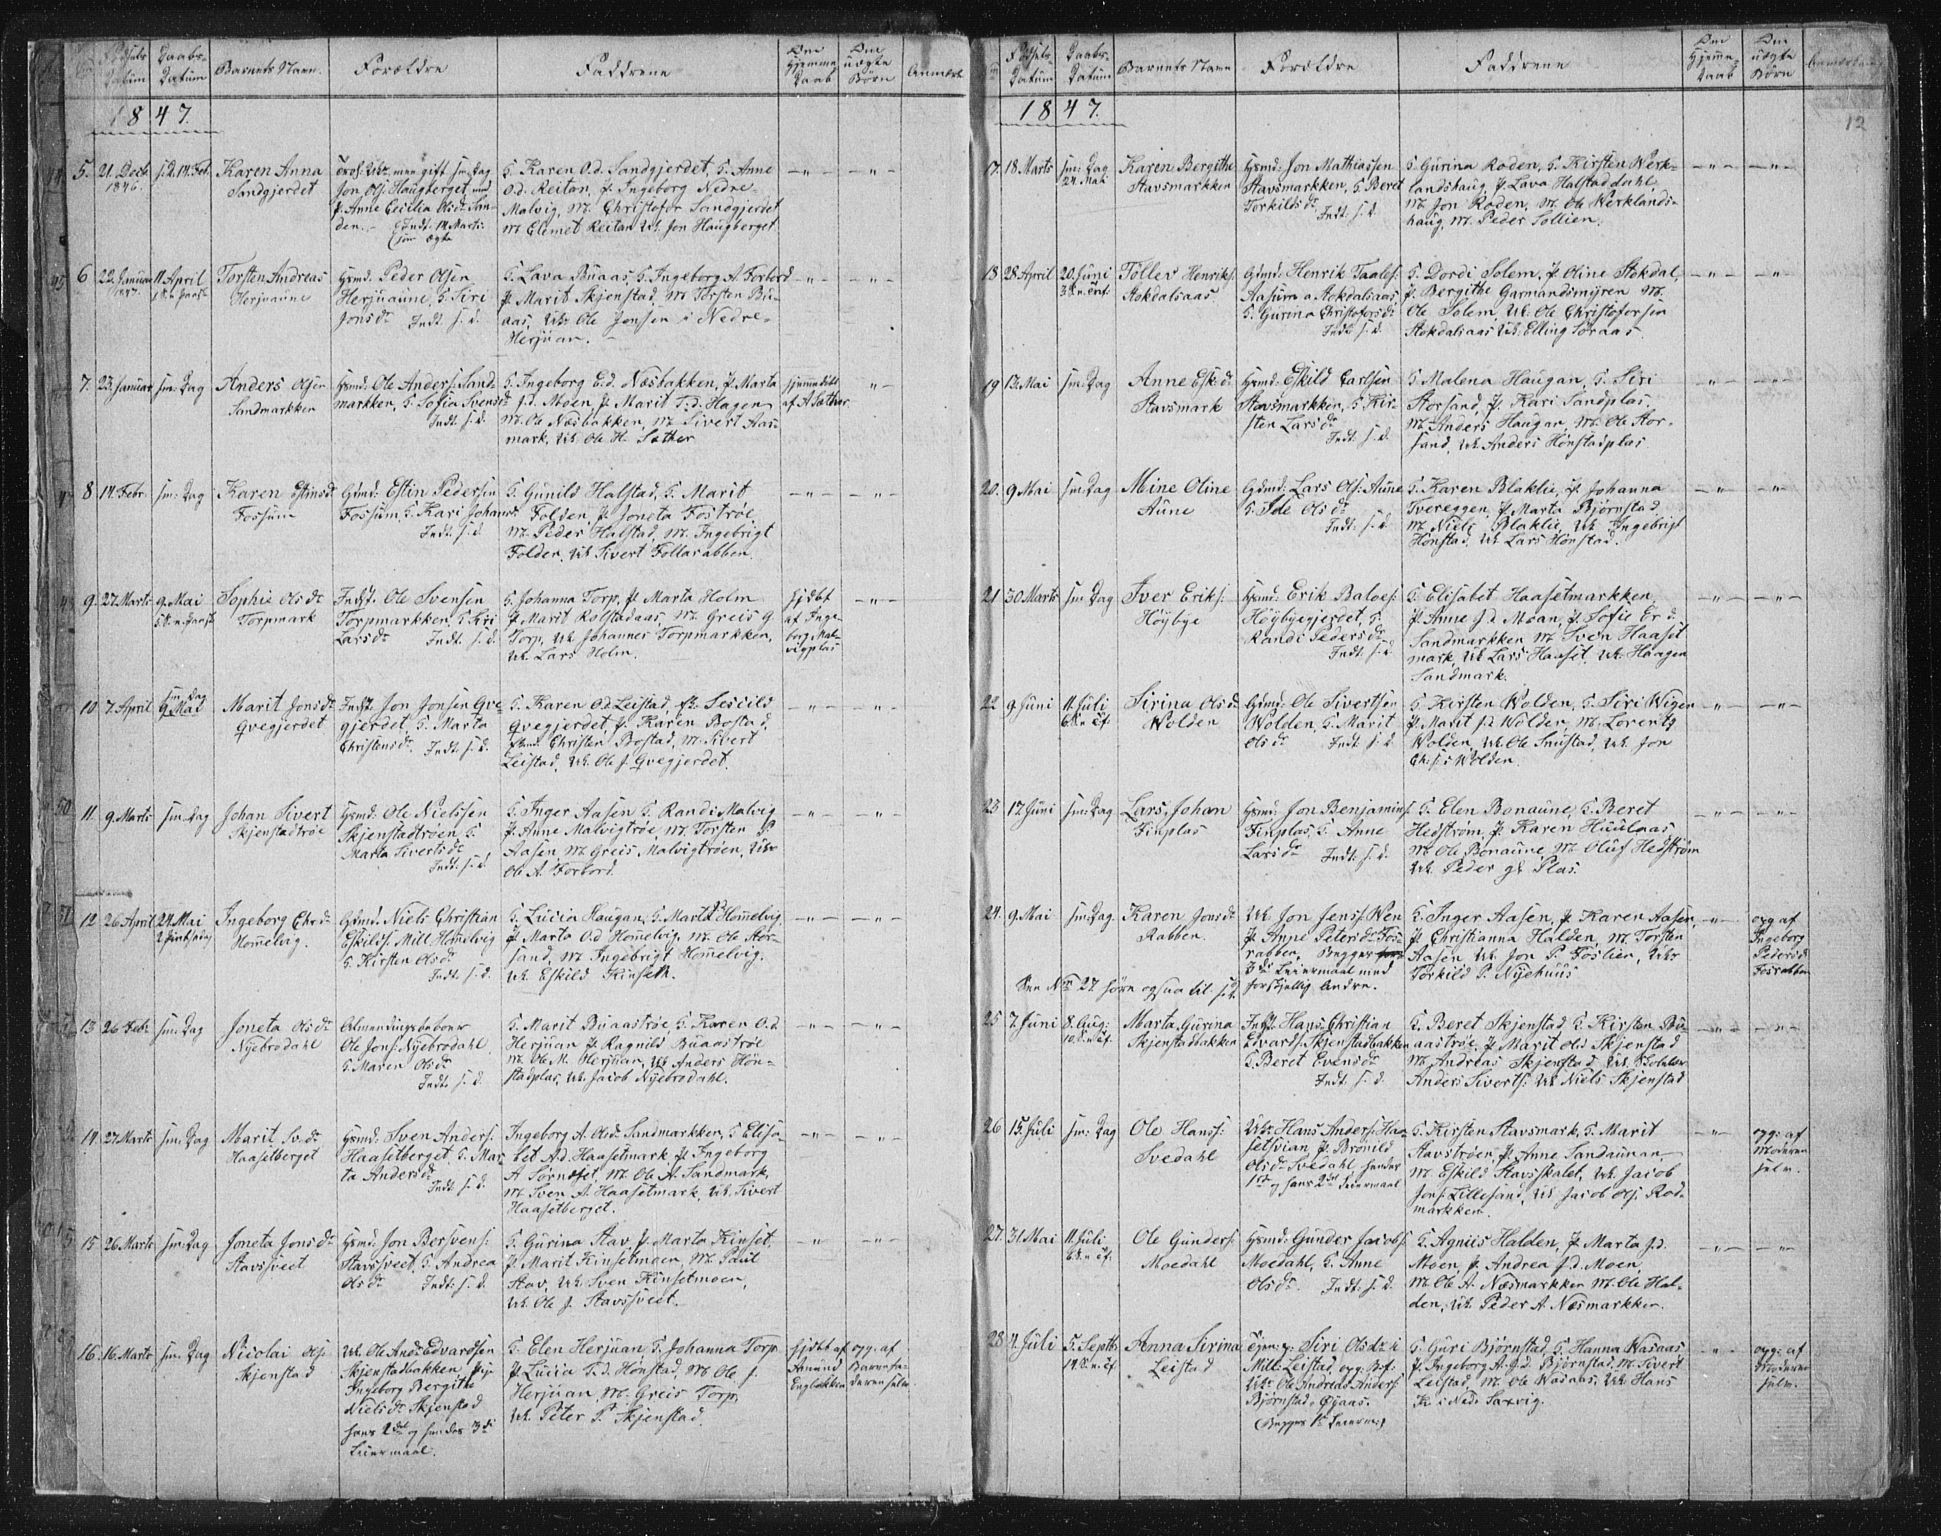 Fødsels Datum
Daabs-Datum
Barnets Navn
Forældre
Faddrene
Om Hjemme Daab
Om uægte Børn
Anmærk
1847.
5. 21. Decb. 1846. s.D. 14. Feb.
Karen Anna
Sandgjerdet
Jon Ols: Haugberget, med
P. Anne Cecilia Olsdr San-
den. Indt. 14 Marts
som ægte
G. Karen O.d. Sandgjerdet, G. Anne
O.d. Reitan, P. Ingeborg Nedre-
Malvig, M. Christofer Sandgjerdet
M Elemet Reitan Uk. Jon Haugberget
6 22. Januar 1847. 11 April
Torsten Andreas
Herjuaune
Hsmd. Peder Olsen
Herjuaune, G. Siri
Jonsdr Indt. s. d.
G. Lava Buaas, G. Ingeborg A. Forbord
P. Marit Skjenstad, M Torsten Bu-
aas, Uk. Ole Jensen i Nedre-
Herjuan.
7. 23. Januar sm: Dag
Anders Olsen
Sandmarkken
Hsmd. Ole Anders: Sand-
markken, G. Sofia Svensdr
Indt. s. d.
G. Ingeborg E.d. Næsbakken, P. Marta
J.d. Moen, P. Marit T.d. Hagen
M. Ole Næsbakken, M. Sivert Aas-
mark, Uk. Ole H. Sæther
hjemmedøbt
af A. Sæther
8 14. Febr. sm: Dag
Karen Estinsdr
Fossum
Gdmd: Estin Pedersen
Fossum, G. Kari Johansdr
Indt. s. d.
G. Gunild Halstad, G. Marit
Folden, P. Joneta Fostrøe
M. Peder Halstad, M. Ingebrigt
Folden, Uk. Sivert Follarabben.
9. 27. Marts 9. Mai
Sophie Olsdr
Torpmark
Indst. Ole Svensen
Torpmarkken, G. Siri
Larsdr Indt. s. d.
G. Johanna Torp, P. Marta Holm
P. Marit Rolstadaas, M. Greis G.
Torp, Uk. Johannes Torpmarkken,
Uk. Lars Holm.
hjdbt
af Inge-
borg Mal-
vigplas
10. 7. April sm: Dag 9 Mai
Marit Jonsdr
Qvegjerdet
Indst. Jon Jonsen Qve-
gjerdet, G. Marta
Christensdr Indt. s. d.
G. Karen O.d. Leistad, Sescild
Qvegjerdet, P. Karen Bostad,
Christen Bostad, M. Sivert
Leistad, Uk. Ole J. Qvegjerdet.
11. 9. Marts sm: Dag
Johan Sivert
Skjenstadtrøe
Hsmd. Ole Nielssen
Skjenstadtrøen, G.
Marta Sivertsdr
Indt. s. d.
G. Inger Aasen G. Randi Malvig
P. Anne Malvigtrøe, M. Torsten P.
Aasen M. Greis Malvigtrøen, Uk.
Ole A. Forbord.
12. 26. April 24. Mai
Ingeborg Chr.dr
Hommelvig.
Gdmd. Niels Christian
Eskilds: Mill. Hommelvig
G. Kirsten Olsdr
Indt. s. d.
G. Lucia Haugan, G. Marta Hommelvig
P. Marta O.d. Hommelvig. M. Ole Stor-
sand, M. Ingebrigt Hommelvig.
Uk. Eskild Kinseth.
13 26. Febr sm: Dag
Joneta Olsdr
Nyebrodahl
Almendingsbeboer
Ole Jons: Nyebrodahl
G. Maren Olsdr
Indt. s. d.
G. Marit Buaastrøe, G. Karen O.d.
Herjuan, P. Ragnild Buaastrøe
M. Ole M. Herjuan, Uk. Anders Høn-
stadplas, Uk. Jacob Nyebrodahl.
14. 27. Marts sm: Dag
Marit Sv.dr
Haasetberget
Hsmd. Sven Anders:
Haasetberget, G. Mar-
ta Andersdr Indt. s. d.
Ingeborg A. Olsdr Sandmarkken, G. Elisa-
bet A.d. Haasetmark P. Ingeborg
A Sørndset, M. Ole A. Sandmark,
M. Sven A. Haasetmark, Uk. Sivert
Haasetberget.
15 26. Marts sm: Dag
Joneta Jonsdr
Stavsveet
Hsmd. Jon Bersvens:
Stavsveet, G. Andrea
Olsdr Indt. s. d.
G. Gurina Stav, P. Marta Kinset
P. Marit Kinsetmoen, M. Paul
Stav, Uk. Sven Kinsetmoen,
Uk. Ole J. Stavssveet.
16. 16. Marts sm: Dag
Nicolai Ols:
Skjenstad
Uk. Ole Andr: Edvardsen
Skjenstadbakken, Pig.
Ingeborg Bergithe
Nielsdr Skjenstad
hans 2det og hendes 3di
Leiermaal.
G. Elen Herjuan, G. Johanna Torp
P. Lucia T.d. Hønstad, M. Ole J.
Herjuan, M. Greis Torp,
Uk. Peter P. Skjenstad.
hjdbt af
Amund
Engbakken
opg. af
Barnefa-
deren selv.
Fødsels Datum
Daabs-Datum
Barnets Navn
Forældre
Faddrene
Om Hjemme-Daab
Om uægte Børn
Anmærkning
12
1847.
17. 18 Marts sm: Dag 24. Mai
Karen Bergithe
Stavsmarkken
Hsmd. Jon Mathiassen
Stavsmarkken, G. Beret
Torkildsdr Indt. s. d.
G. Gurina Roden, G. Kirsten Werk-
landshaug, P. Lava Halstaddahl,
M. Jon Roden, M. Ole Werklands-
haug, M. Peder Sollien.
18. 28. April 20. Juni
Tollev Henriks:
Stokdalsaas
Gdmd: Henrik Taales:
Aasum a. Stokdalsaas
G. Gurina Christofersdr
Indt. s. d.
G. Dordi Solem, P. Oline Stokdal,
P. Bergithe Garmandsmyren M.
Ole Solem, Uk. Ole Christofersen
Stokdalsaas Uk. Elling Søraas.
19 13. Mai sm: Dag
Anne Esk.dr
Stavsmark
Hsmd. Eskild Carlsen
Stavsmarkken, G. Kir-
sten Larsdr
Indt. s. d.
G. Malena Haugan, G. Siri
Storsand, P. Kari Sandplas,
M. Anders Haugan, M. Ole Stor-
sand, Uk. Anders Hønstadplas
20. 9. Mai sm: Dag
Mine Oline
Aune
Gdmd. Lars Ols: Aune
G. Ide Olsdr
Indt. s. d.
G. Karen Blaklie, P. Johanna
Tvereggen, P. Marta Bjørnstad
M. Niels Blaklie, Uk. Ingebrigt
Hønstad, Uk. Lars Hønstad.
21 30 Marts sm: Dag
Iver Eriks:
Høybye
Hsmd. Erik Baloes:
Høybyegjerdet, G.
Randi Pedersdr
Indt. s. d.
G. Elisabet Haasetmarkken,
P. Anne J.d. Moan, P. Sofie Er.d.
Sandmarkken M. Sven Haaset-
mark, Uk. Lars Haaset, Uk. Haagen
Sandmark.
22 9. Juni 11. Juli
Sirina Olsdr
Wolden
Gdmd. Ole Sivertsen
Wolden, G. Marit
Olsdr Indt. s. d.
G. Kirsten Wolden, G. Siri Wigen
P. Marit J.d. Wolden, M. Lorents
Wolden, Uk. Ole Snustad, Uk. Jon
Ch:s: Wolden.
23. 17. Juni sm: Dag
Lars Johan
Finplas
Hsmd: Jon Benjamins:
Finplas, G. Anne
Larsdr Indt. s. d.
G. Elen Bonaune, G. Beret
Hedstrøm, P. Karen Huulaas
M. Ole Bonaune, M. Oluf Hedstrøm
Uk. Peder gl. Plas.
24. 9. Mai sm: Dag
Karen Jonsdr
Rabben.
Uk. Jon Jens: Wen
P. Anne Petersdr Fos-
rabben. Begges
3di Leiermaal med
forskjellig Andre.
Den No 27 hører ogsaa til s. d.
G. Inger Aasen, P. Karen Aasen,
P. Christianna Halden, M. Torsten
Aasen, Uk. Jon P. Foslien, Uk.
Torkild P. Nyehuus
opg af
Ingeborg
Pedersdr
Fosrabben
25 7. Juni 8. Aug:
Marta Gurina
Skjenstadbakken
Indst. Hans Christian
Edvards: Skjenstadbakken
G. Beret Evensdr
Indt. s. d.
G. Beret Skjenstad, G. Kirsten Bu-
aastrøe, P. Marit Olsd Skjenstad
M. Andreas Skjenstad, Uk. Skolelær
Anders Siverts: Uk. Niels Skjenstad
26 15. Juli sm: Dag
Ole Hans:
Svedahl
Uk. Hans Anders: Haa-
setsvian, P. Brønild
Olsdr Svedahl, hendes
1ste og hans 2det Leiermaal
G. Kirsten Stavsmark, G. Marit
Stavstrøen, P. Anne Sandaunan,
M. Eskild Stavsskalet, Uk. Jacob
Jons: Lillesand, Uk. Jacob Ols: Rod-
markken.
opg: af
Moderen
selv.
27. 31. Mai 11. Juli
Ole Gunders:
Moedahl
Hsmd. Gunder Jacobs:
Moedahl, G. Anne
Olsdr. Indt. s. d.
G. Agniis Halden, P. Marta J.d.
Moen, P. Andrea J.d. Moen,
M. Ole A. Næsmarkken M. Ole Hal-
den, Uk. Peder A. Næsmarkken.
28 4. Juli 5. Septb.
Anna Sirina
Leistad
Siri Olsdr i
Mill: Leistad, opg. Bf.
Uk. Ole Andreas Anders:
Bjørnstad, Øjaas.
(Begges 1ste Leierm:)
G. Guri Bjørnstad, G. Hanna Wasaas
P. Ingeborg A.J.d. Bjørnstad, M. Sivert
Leistad, M. Ole Wasaas, Uk. Hans
K: i Ned: Saxvig.
opg: af
Moderen
selv.